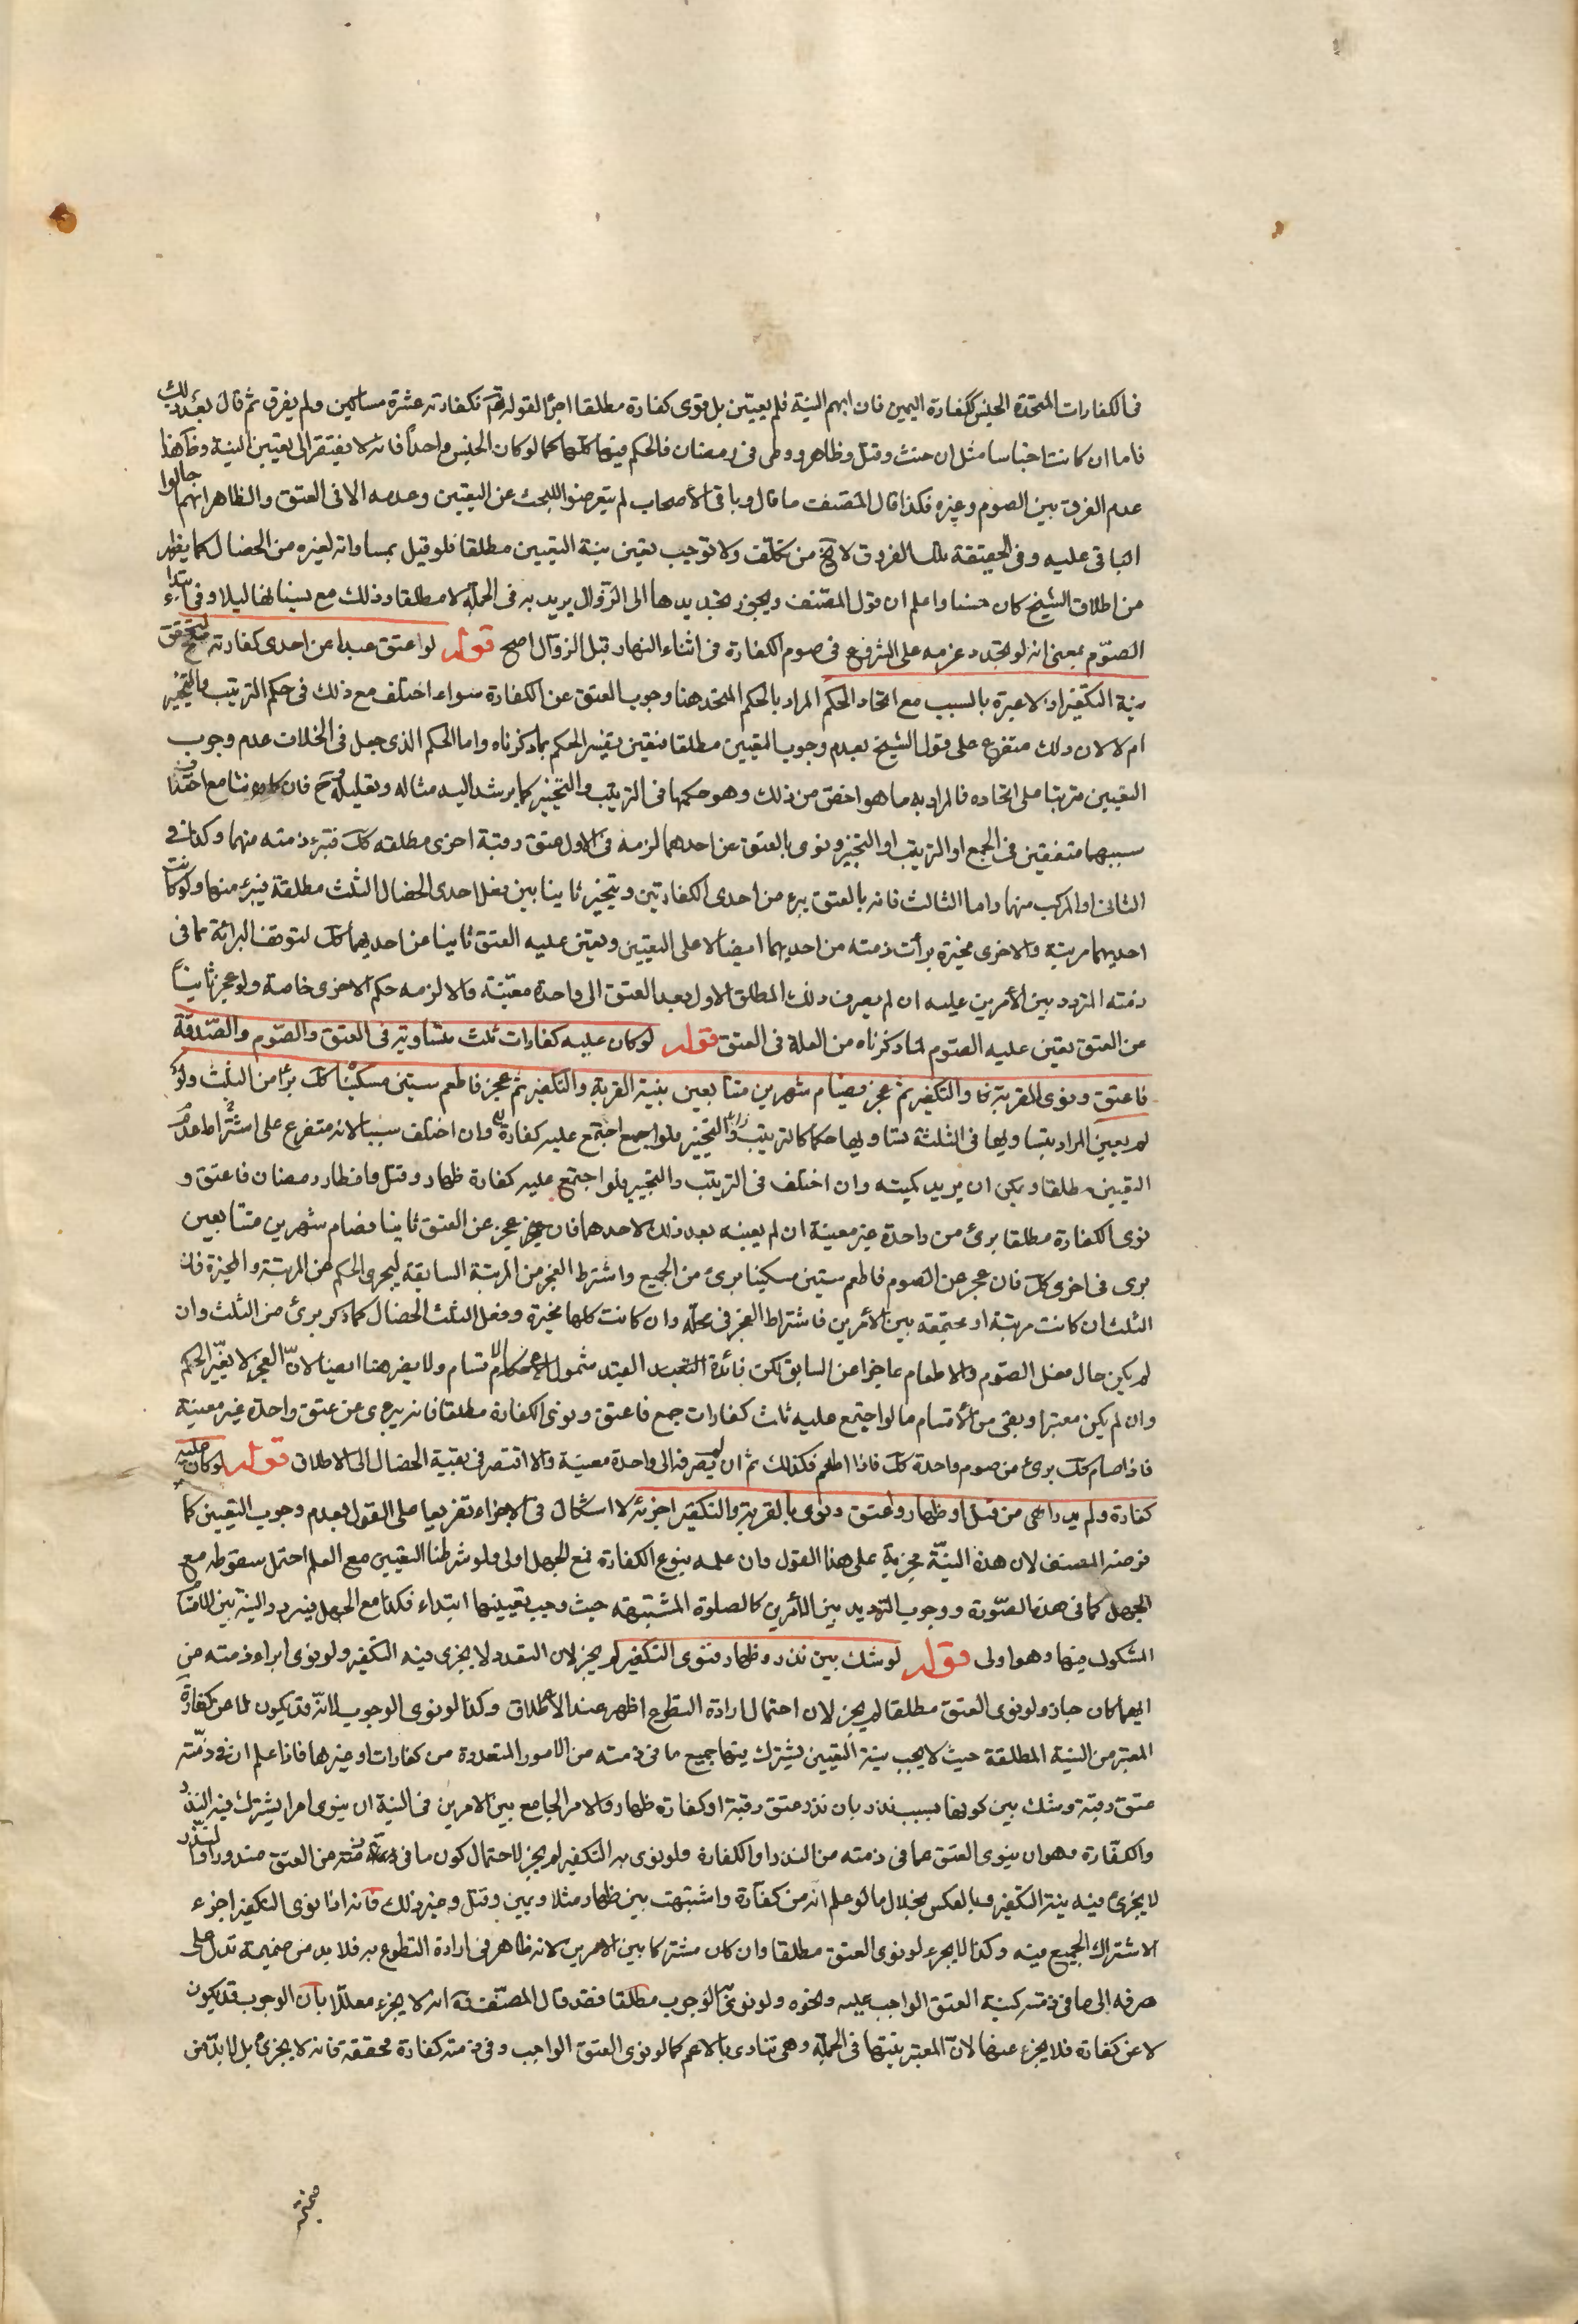 فى الكفارات المتحدة الجنس ككفارة اليمين فان ابهم النية فلم يعين بل نوى كفارة مطلقا اجزأ لقوله تعم فكفارته عشرة مساكين ولم يفرق ثم قال بعد ذلك
فاما ان كانت اجناسا مثل ان حنث وقتل وظاهر ووطى فى رمضان فالحكم فيها كلها كما لو كان الجنس واحدا فانه لا يفتقر الى تعيين النية وظاهر هذا
عدم الفرق بين الصوم وغيره فكذا قال المصنف ما قال وباقى الأصحاب لم يتعرضوا للبحث عن التعيين وعدمه الا فى العتق والظاهر انهم احالوا
الباقى عليه وفى الحقيقة تلك الفروق لا تخ من تكلف ولا توجب تعين نية التعيين مطلقا فلو قيل بمساواته لغيره من الخصال كما يظهر
من اطلاق الشيخ كان حسنا واعلم ان قول المصنف ويجوز تجديدها الى الزوال يريد به فى الجملة لا مطلقا وذلك مع نسيانها ليلا وفى ابتداء
الصوم بمعنى انه لو تجدد عزمه على الشروع فى صوم الكفارة فى اثناء النهار قبل الزوال اصح قوله لو اعتق عبدا عن احدى كفارته صح لتحقق
نية التكفير اذ لا عبرة بالسبب مع اتحاد الحكم المراد بالحكم المتحد هنا وجوب العتق عن الكفارة سواء اختلف مع ذلك فى حكم الترتيب والتخيير
ام لا لان ذلك متفرع على قول الشيخ بعدم وجوب التعيين مطلقا فتعين تفسير الحكم بما ذكرناه واما الحكم الذى جعل فى الخلاف عدم وجوب
التعيين مترتبا على اتحاده فالمراد به ما هو اخص من ذلك وهو حكمها فى الترتيب والتخيير كما يرشد اليه مثاله وتعليله وح فان كانتا مع اختلاف
سببهما متفقتين فى الجمع او الترتيب او التخيير ونوى بالعتق عن احدهما لزمه فى الاول عتق رقبة اخرى مطلقه كك فتبرء ذمته منهما وكذا فى
الثانى او المركب منهما واما الثالث فانه بالعتق يبرء من احدى الكفارتين ويتخير ثانيا بين فعل احدى الخصال الثلث مطلقة فيبرء منهما ولو كانت
احديهما مرتبة والاخرى مخيرة برأت ذمته من احديهما ايضا لا على التعيين ويعين عليه العتق ثانيا عن احديهما كك لتوقف البرائة مما فى
ذمته المتردد بين الأمرين عليه ان لم يصرف ذلك المطلق الاول بعد العتق الى واحدة معينة والا لزمه حكم الاخرى خاصة ولو عجز ثانيا
عن العتق تعين عليه الصوم لما ذكرناه من العلة فى العتق قوله لو كان عليه كفارات ثلث متساوية فى العتق والصوم والصدقة
فاعتق ونوى القربة والتكفير ثم عجز فصام شهرين متتابعين بنية القربة والتكفير ثم عجز فاطعم ستين مسكينا كك برأ من الثلث ولو
لم يعين المراد بتساويها فى الثلثة تساويها حكما كالترتيب والتخيير فلو اجمع اجتمع عليه كفارة وان اختلف سببا لانه متفرع على اشتراط عدم
التعيين مطلقا ويكن ان يريد كميته وان اختلف فى الترتيب والتخيير فلو اجتمع عليه كفارة ظهار وقتل وافطار رمضان فاعتق و
نوى الكفارة مطلقا برئ من واحدة غير معينة ان لم يعينه بعد ذلك لاحدهما فان عجز عن العتق ثانيا فصام شهرين متتابعين
برى فى اخرى كك فان عجز عن الصوم فاطعم ستين مسكينا برئ من الجميع واشترط العجز من المرتبة السابقة ليجرى الحكم على المرتبة والمخيرة فان
الثلث ان كانت مرتبة او مجتمعة بين الأمرين فاشتراط العجز فى محله وان كانت كلها مخيرة وفعل الثلث الخصال كما ذكر برئ من الثلث وان
لم يكن حال فعل الصوم والاطعام عاجزا عن السابق لكن فائدة القيد شمول الاقسام ولا يضر هنا ايضا لان العجز لا يغير الحكم
وان لم يكن معتبرا وبقى من الأقسام ما لو اجتمع عليه ثلث كفارات جمع فاعتق ونوى الكفارة مطلقا فانه يبرى عن عتق واحدة غير معينة
فاذا صام كك برئ من صوم واحدة كك فاذا اطعم فكذلك ثم ان لم يصرفه الى واحدة معينة والا اقتصر فى بقية الخصال الى الاطلاق قوله لو كان عليه
كفارة ولم يدر اهى من قتل او ظهار واعتق ونوى بالقربة والتكفير اجزئه لا اشكال فى الاجزاء تفريعا على القول بعدم وجوب التعيين كما
فرضه المصنف لان هذه النية مجزية على هذا القول وان علمه بنوع الكفارة فمع الجهل اولى ولو شرطنا التعيين مع العلم احتمل سقوطه مع
الجهل كما فى هذه الصورة ووجوب الترديد بين الأمرين كالصلوة المشتبهة حيث وجب تعيينها ابتداء فكذا مع الجهل فيردد النية بين الاقسام
المشكوك فيها وهو اولى قوله لو شك بين نذر وظهار فنوى التكفير لم يجز لان النذر لا يجزى فيه التكفير ولو نوى ابراء ذمته من
ايهما كان جاز ولو نوى العتق مطلقا لم يجز لان احتمال ارادة التطوع اظهر عند الاطلاق وكذا لو نوى الوجوب لانه قد يكون لا عن كفارة
المعتبر من النية المطلقة حيث لا يجب نية التعيين يشترك فيها جميع ما فى ذمته من الامور المتعددة من كفارات او غيرها فاذا علم ان فى ذمته
عتق رقبة وشك بين كونها بسبب نذر بان نذر عتق رقبة او كفارة ظهار فالامر الجامع بين الامرين فى النية ان ينوى امرا يشترك فيه النذر
والكفارة وهو ان ينوى العتق عما فى ذمته من النذر او الكفارة ولو نوى به التكفير لم يجز لاحتمال كون ما فى ذمته من العتق منذورا والنذر
لا يجزئ فيه نية التكفير وبالعكس بخلال ما لو علم انه من كفارة واشتبهت بين ظهار مثلا ويمين وقتل وغير ذلك فانه اذا نوى التكفير اجزء
لاشتراك الجميع فيه وكذا لا يجزء لو نوى العتق مطلقا وان كان مشتركا بين الامرين لانه ظاهر فى ارادة التطوع به فلا بد من ضميمة تدل على
صرفه الى ما فى ذمته كنية العتق الواجب عليه ونحوه ولو نوى به الوجوب مطلقا فقد قال المصنف انه لا يجزء معللا بان الوجوب قد يكون
لا عن كفارة فلا يجزء عنها لان المعتبر نيتها فى الجملة وهى تنادى بالاعم كما لو نوى العتق الواجب وفى ذمته كفارة محققة فانه لا يجزئ بل لا بد من